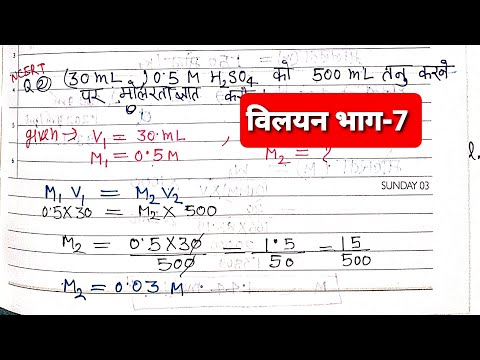 NCERT
Q② (30 mL , 0.5 M H₂SO₄ को 500 mL तनु करने
पर मोलरता ज्ञात
विलयन भाग-7
given → V₁ = 30 mL ,
M₁ = 0.5 M M₂ = ?
SUNDAY 03
M₁ V₁ = M₂ V₂
0.5 X 30 = M₂ X 500
M₂ = 0.5 X 30 / 500 = 1.5 / 50 = 15 / 500
M₂ = 0.03 M